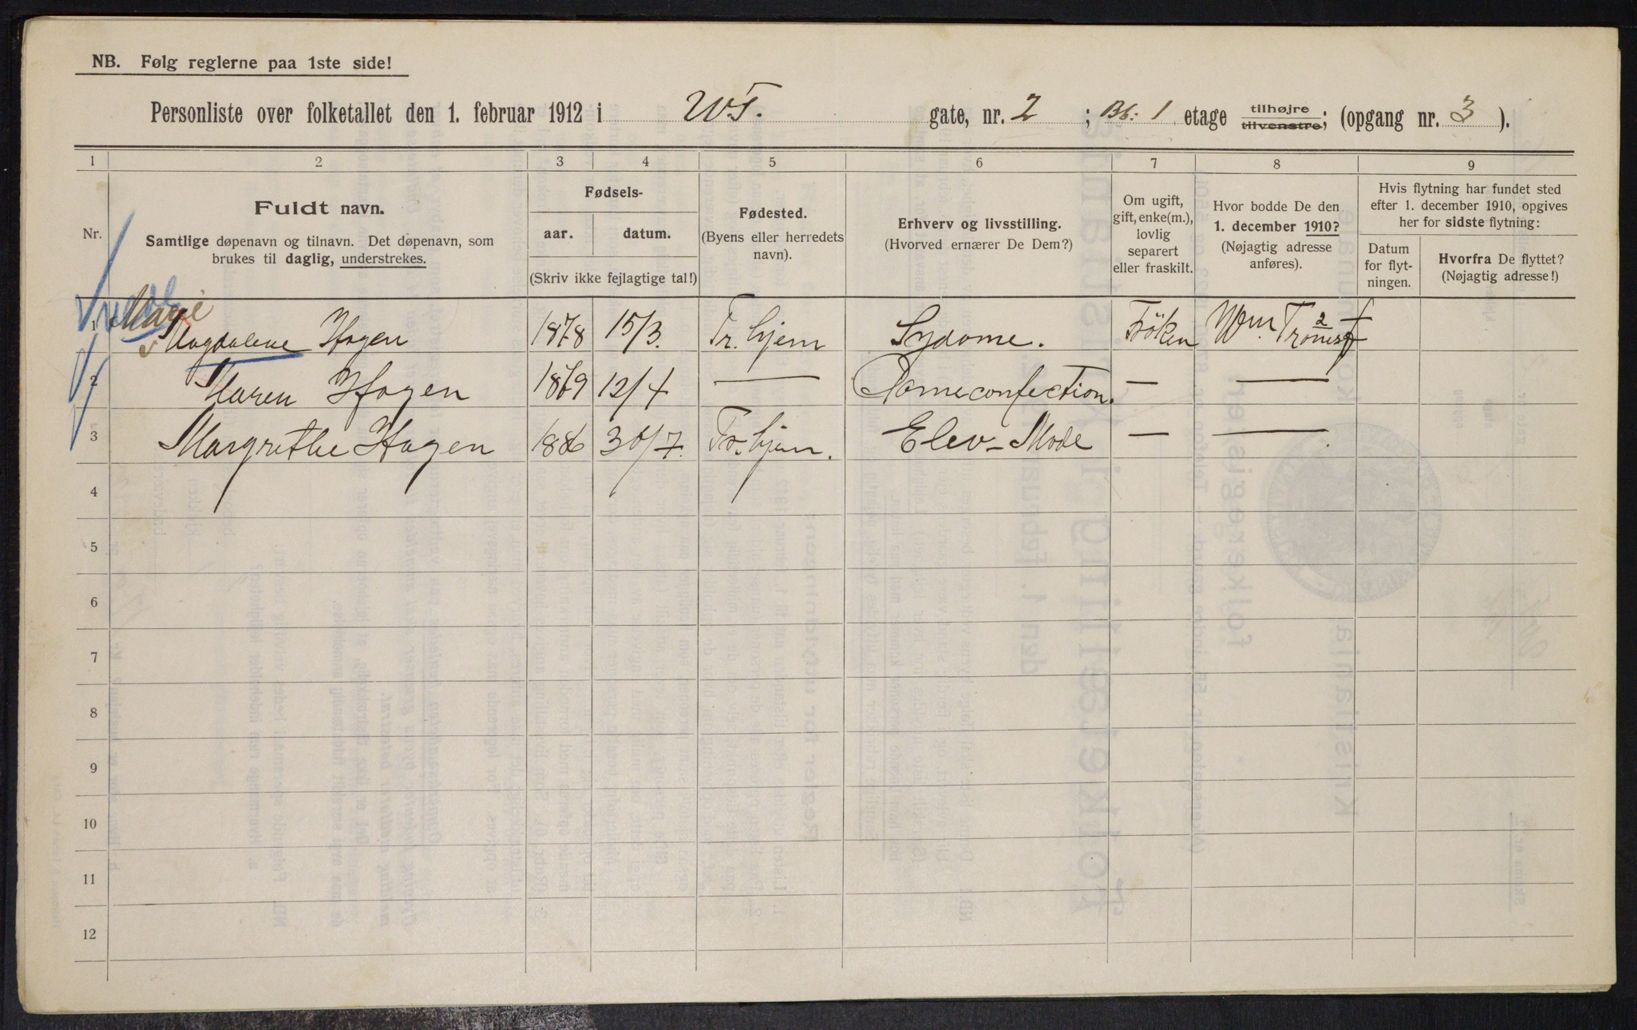 NB. Følg reglerne paa 1ste side!
Personliste over folketallet den 1. februar 1912 i W.T. gate, nr. 2 ; Bk: 1 etage tilhøjre tilvenstre; (opgang nr. 3 ).
1 2 3 4 5 6 7 8 9
Nr.
Fuldt navn.
Samtlige døpenavn og tilnavn. Det døpenavn, som
brukes til daglig, understrekes.
Fødsels-
aar. datum.
(Skriv ikke fejlagtige tal!)
Fødested.
(Byens eller herredets
navn).
Erhverv og livsstilling.
(Hvorved ernærer De Dem?)
Om ugift,
gift, enke(m.),
lovlig
separert
eller fraskilt.
Hvor bodde De den
1. december 1910?
(Nøjagtig adresse
anføres).
Hvis flytning har fundet sted
efter 1. december 1910, opgives
her for sidste flytning:
Datum
for flyt-
ningen.
Hvorfra De flyttet?
(Nøjagtig adresse!)
Marie
1 Magdalene Hagen 1878 15/3. Tr.hjem Sydame. Fröken Wm. Tromsg 2
2 Maren Hagen 1879 12/4 — Dameconfection. — —
3 Margrethe Hagen 1886 30/7. Tr.hjem. Elev-Mode — —
4
5
6
7
8
9
10
11
12